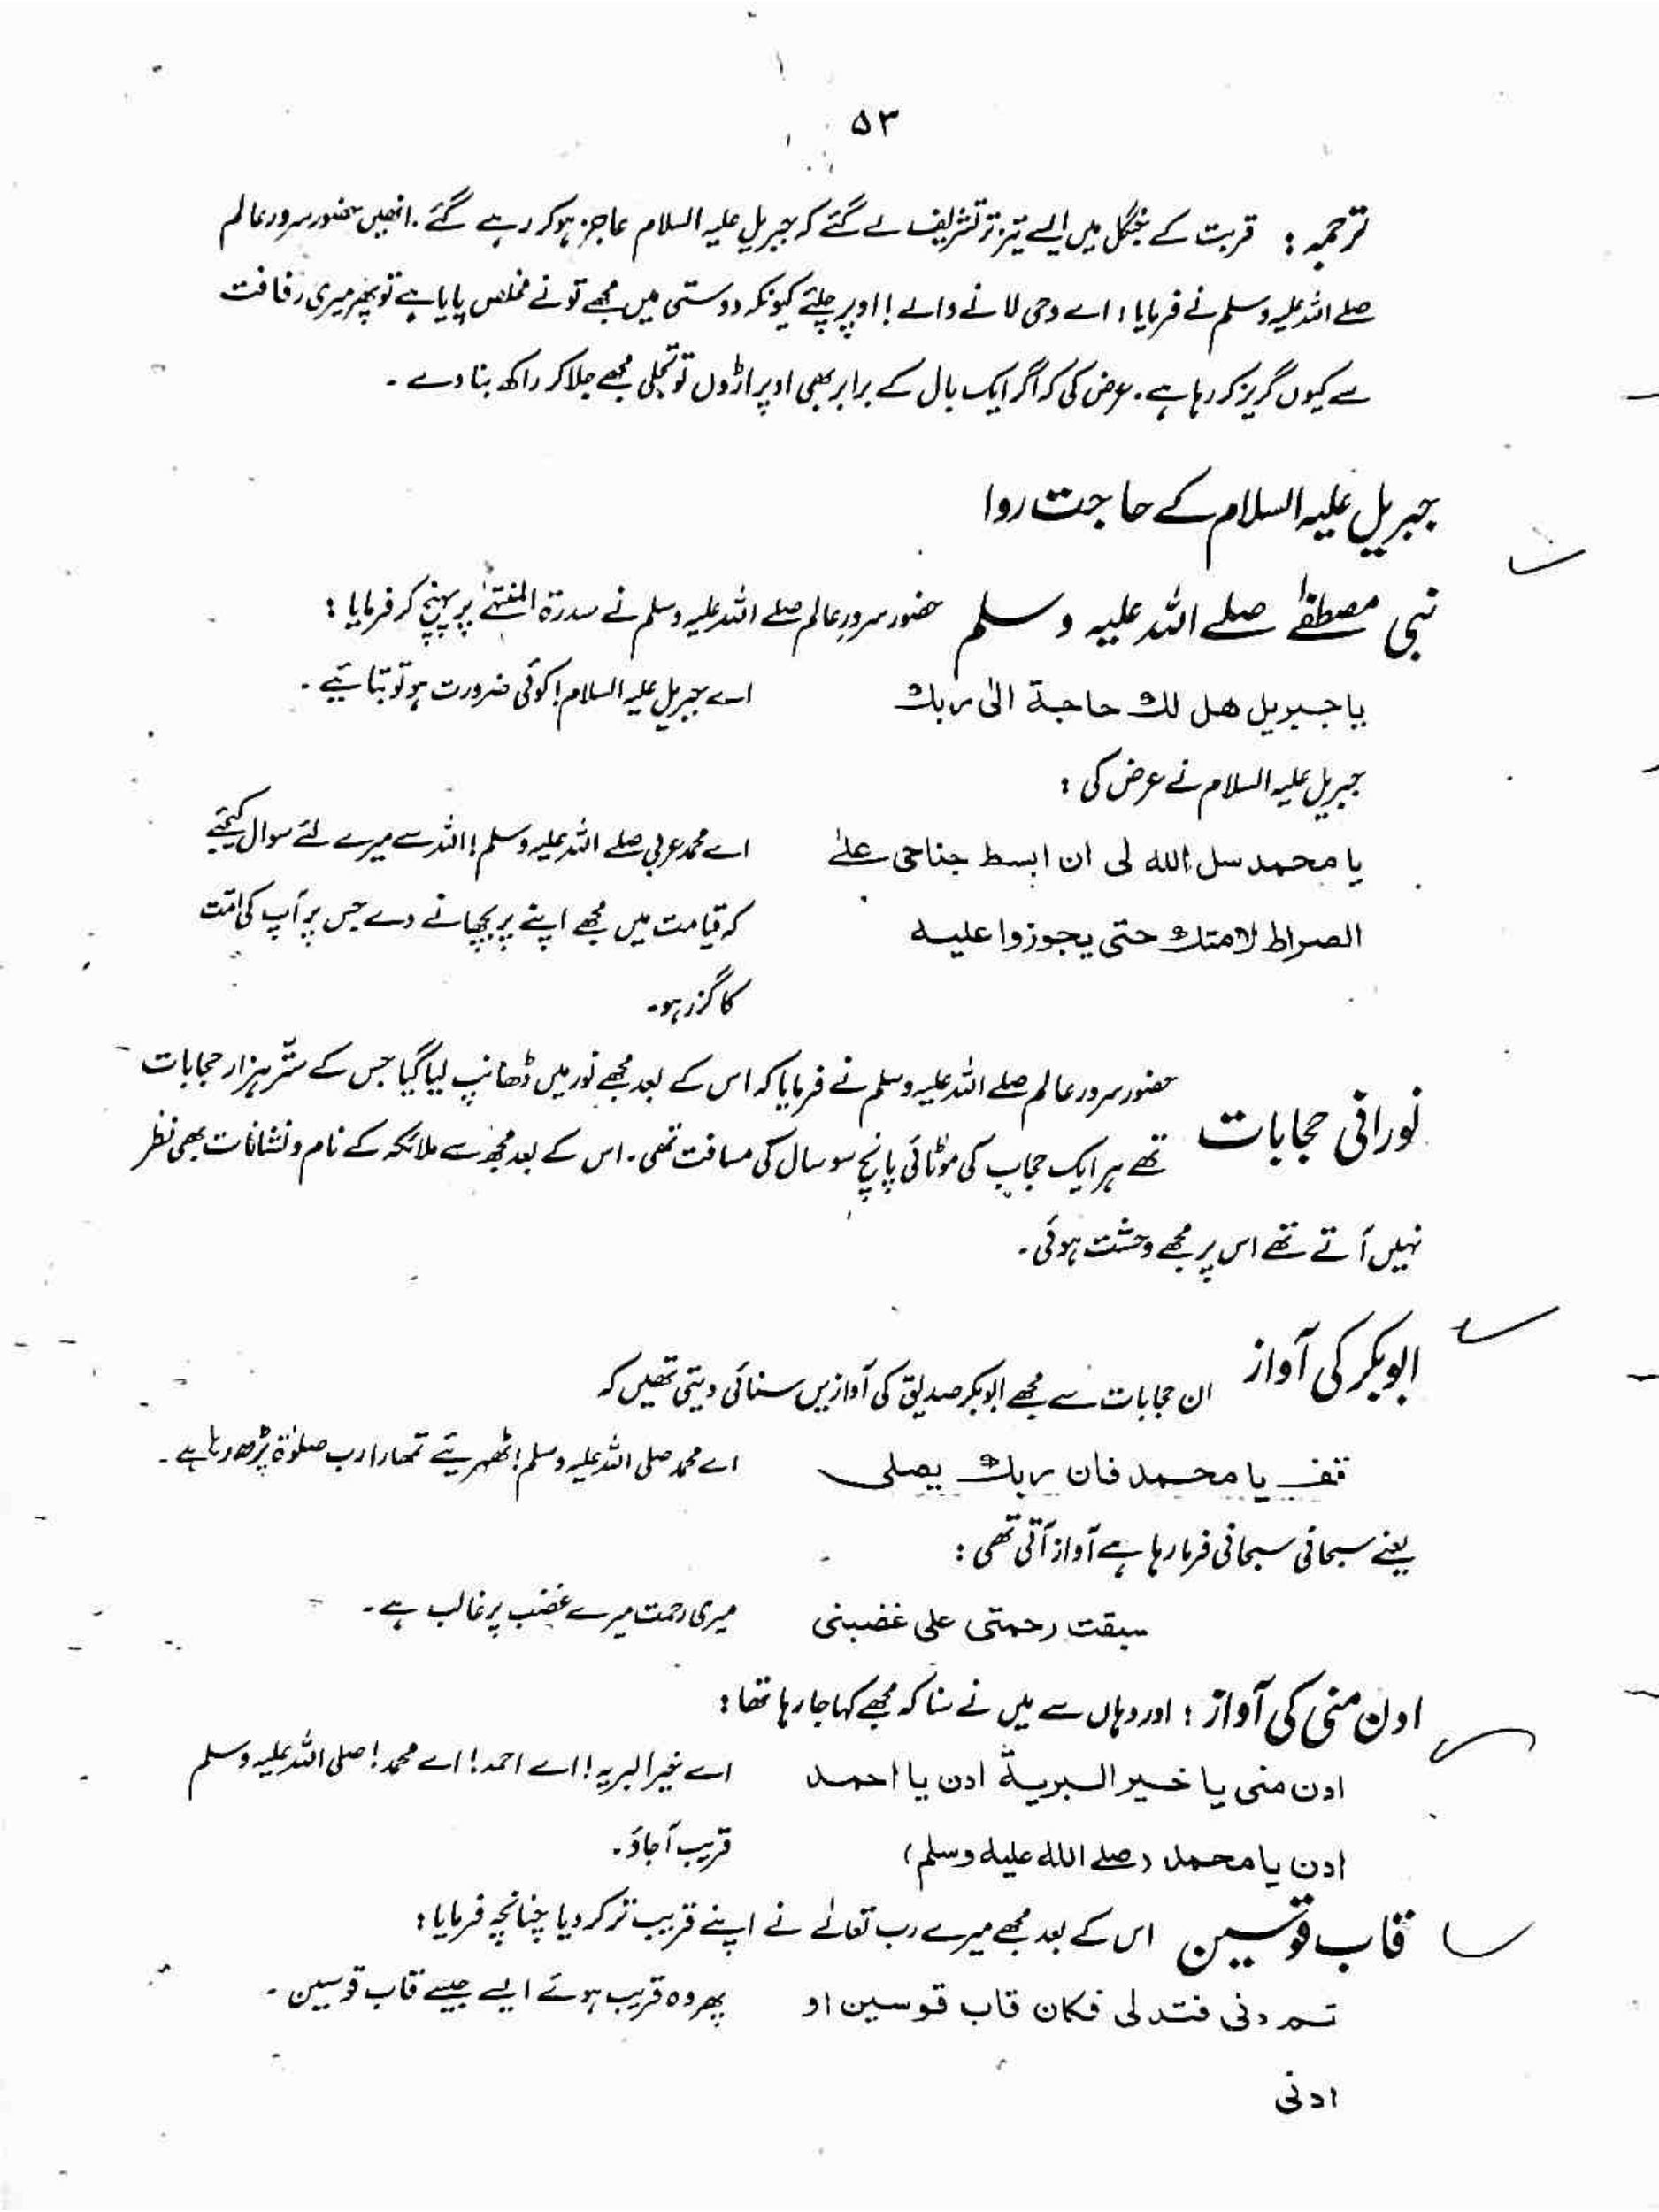 ۵۳
ترجمہ : قربت کے جنگل میں ایسے تیز تر تشریف لے گئے کہ جبریل علیہ السلام عاجز ہو کر رہے گئے . انھیں حضور سرور عالم
صلے اللہ علیہ وسلم نے فرمایا ؛ اے وحی لانے والے ! اوپر چلئے کیونکہ دوستی میں مجھے تو نے مخلص پایا ہے تو پھر میری رفاقت
سے کیوں گریز کر رہا ہے . عرض کی کہ اگر ایک بال کے برابر بھی اوپر اڑوں تو تجلی مجھے جلا کر راکھ بنا دے .
جبریل علیہ السلام کے حاجت روا
نبی مصطفےٰ صلے اللہ علیہ وسلم حضور سرورِ عالم صلے اللہ علیہ وسلم نے سدرۃ المنتہےٰ پر پہنچ کر فرمایا :
یا جبریل ھل لك حاجة الیٰ ربك اے جبریل علیہ السلام ! کوئی ضرورت ہو تو بتائیے .
جبریل علیہ السلام نے عرض کی :
یا محمد سل الله لی ان ابسط جناحی علے اے محمد عربی صلے اللہ علیہ وسلم ! اللہ سے میرے لئے سوال کیجئے
الصراط لامتك حتی یجوزوا علیه کہ قیامت میں مجھے اپنے پر بچھانے دے جس پر آپ کی امت
کا گزر ہو۔
نورانی حجابات حضور سرور عالم صلے اللہ علیہ وسلم نے فرمایا کہ اس کے بعد مجھے نور میں ڈھانپ لیا گیا جس کے ستّر ہزار حجابات
تھے ہر ایک حجاب کی موٹائی پانچ سو سال کی مسافت تھی . اس کے بعد مجھ سے ملائکہ کے نام و نشانات بھی نظر
نہیں آتے تھے اس پر مجھے وحشت ہوئی .
ابوبکر کی آواز ان حجابات سے مجھے ابوبکر صدیق کی آوازیں سنائی دیتی تھیں کہ
قف یا محمد فان ربك یصلی اے محمد صلی اللہ علیہ وسلم ! ٹھہریئے تمھارا رب صلوٰۃ پڑھ رہا ہے .
یعنے سبحانی سبحانی فرما رہا ہے آواز آتی تھی :
سبقت رحمتی علی غضبنی میری رحمت میرے غضب پر غالب ہے .
ادن منی کی آواز ؛ اور وہاں سے میں نے سنا کہ مجھے کہا جا رہا تھا :
ادن منی یا خیر البریة ادن یا احمد اے خیر البریہ ! اے احمد ! اے محمد ! صلی اللہ علیہ وسلم
ادن یا محمد (صلے الله علیه وسلم) قریب آ جاؤ .
قاب قوسین اس کے بعد مجھے میرے رب تعالےٰ نے اپنے قریب تر کر دیا چنانچہ فرمایا :
ثم دنی فتدلی فکان قاب قوسین او پھر وہ قریب ہوئے ایسے جیسے قاب قوسین .
ادنی